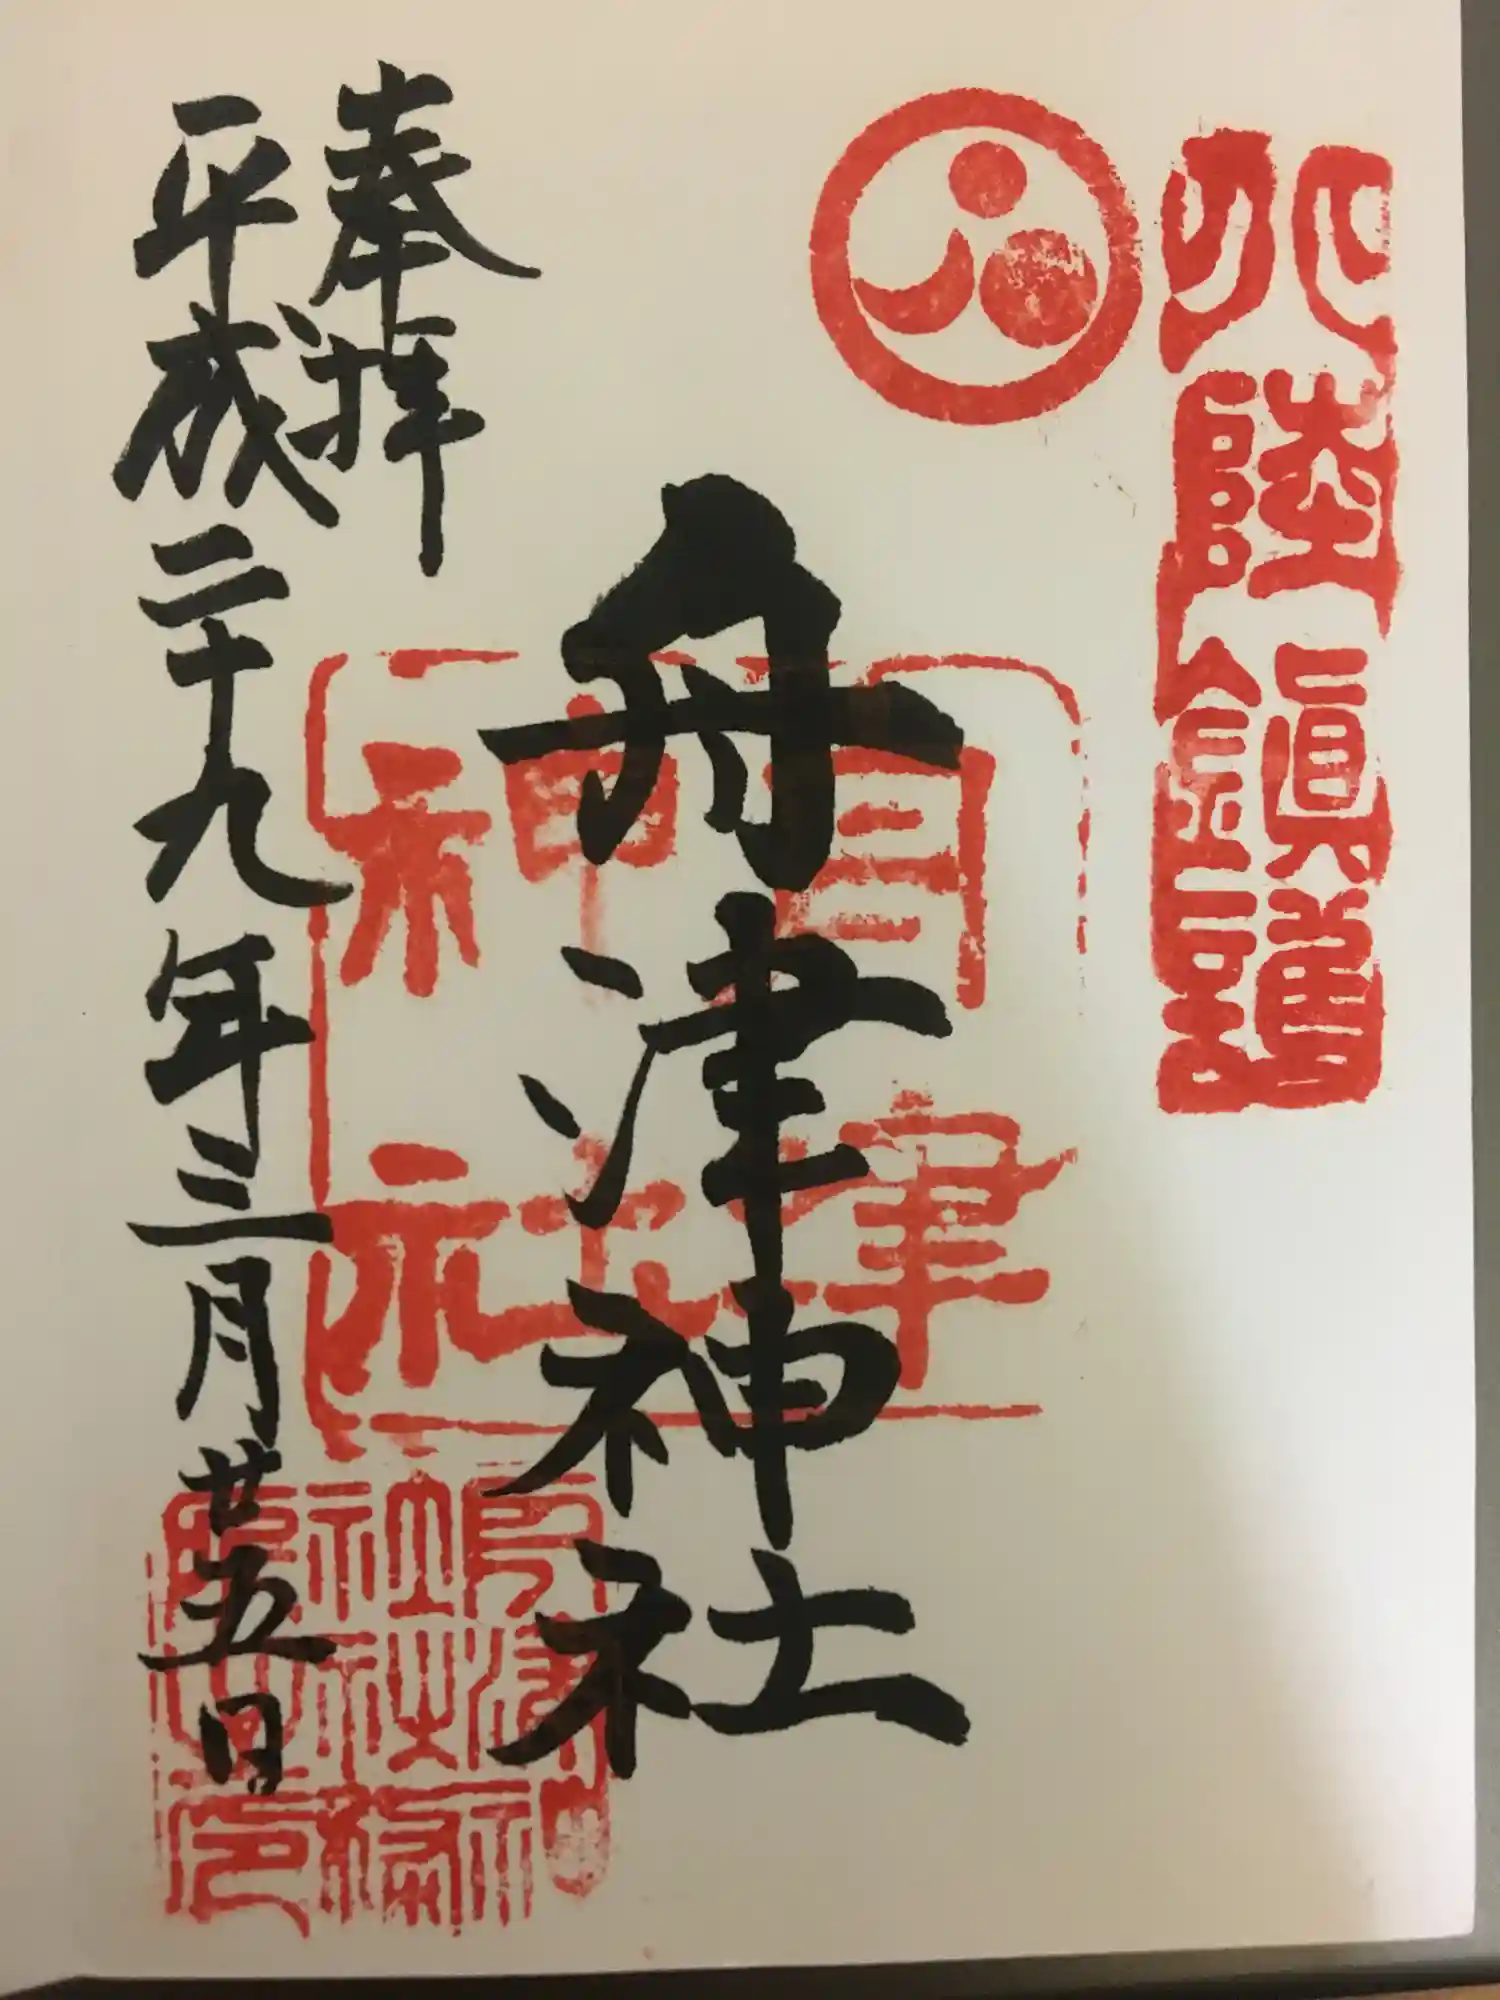 北陸鎮護
舟津神社
奉拝
平成二十九年三月廿五日
舟津
神社